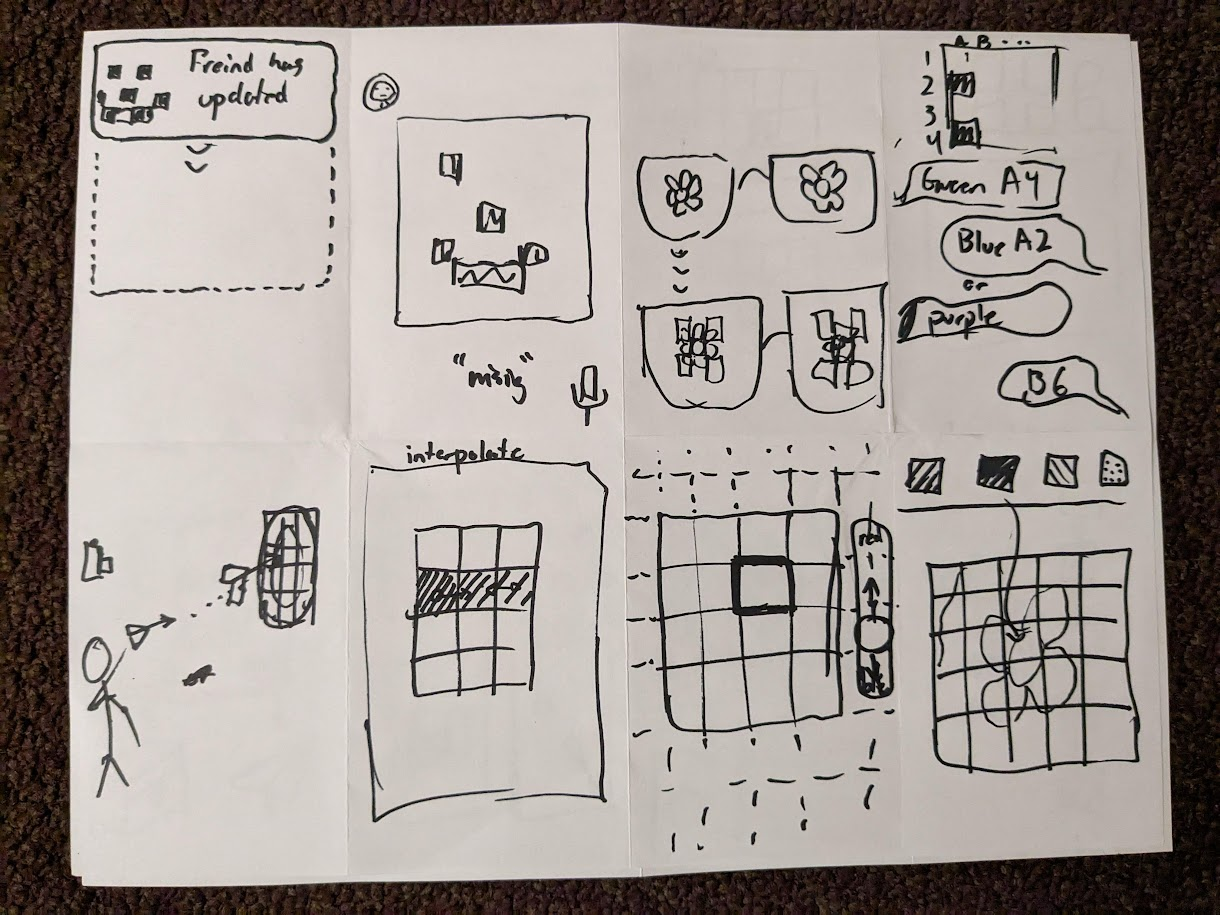 Freind has
updated
A B ...
1
2
3
4
Green A4
Blue A2
or
purple
B6
interpolate
red